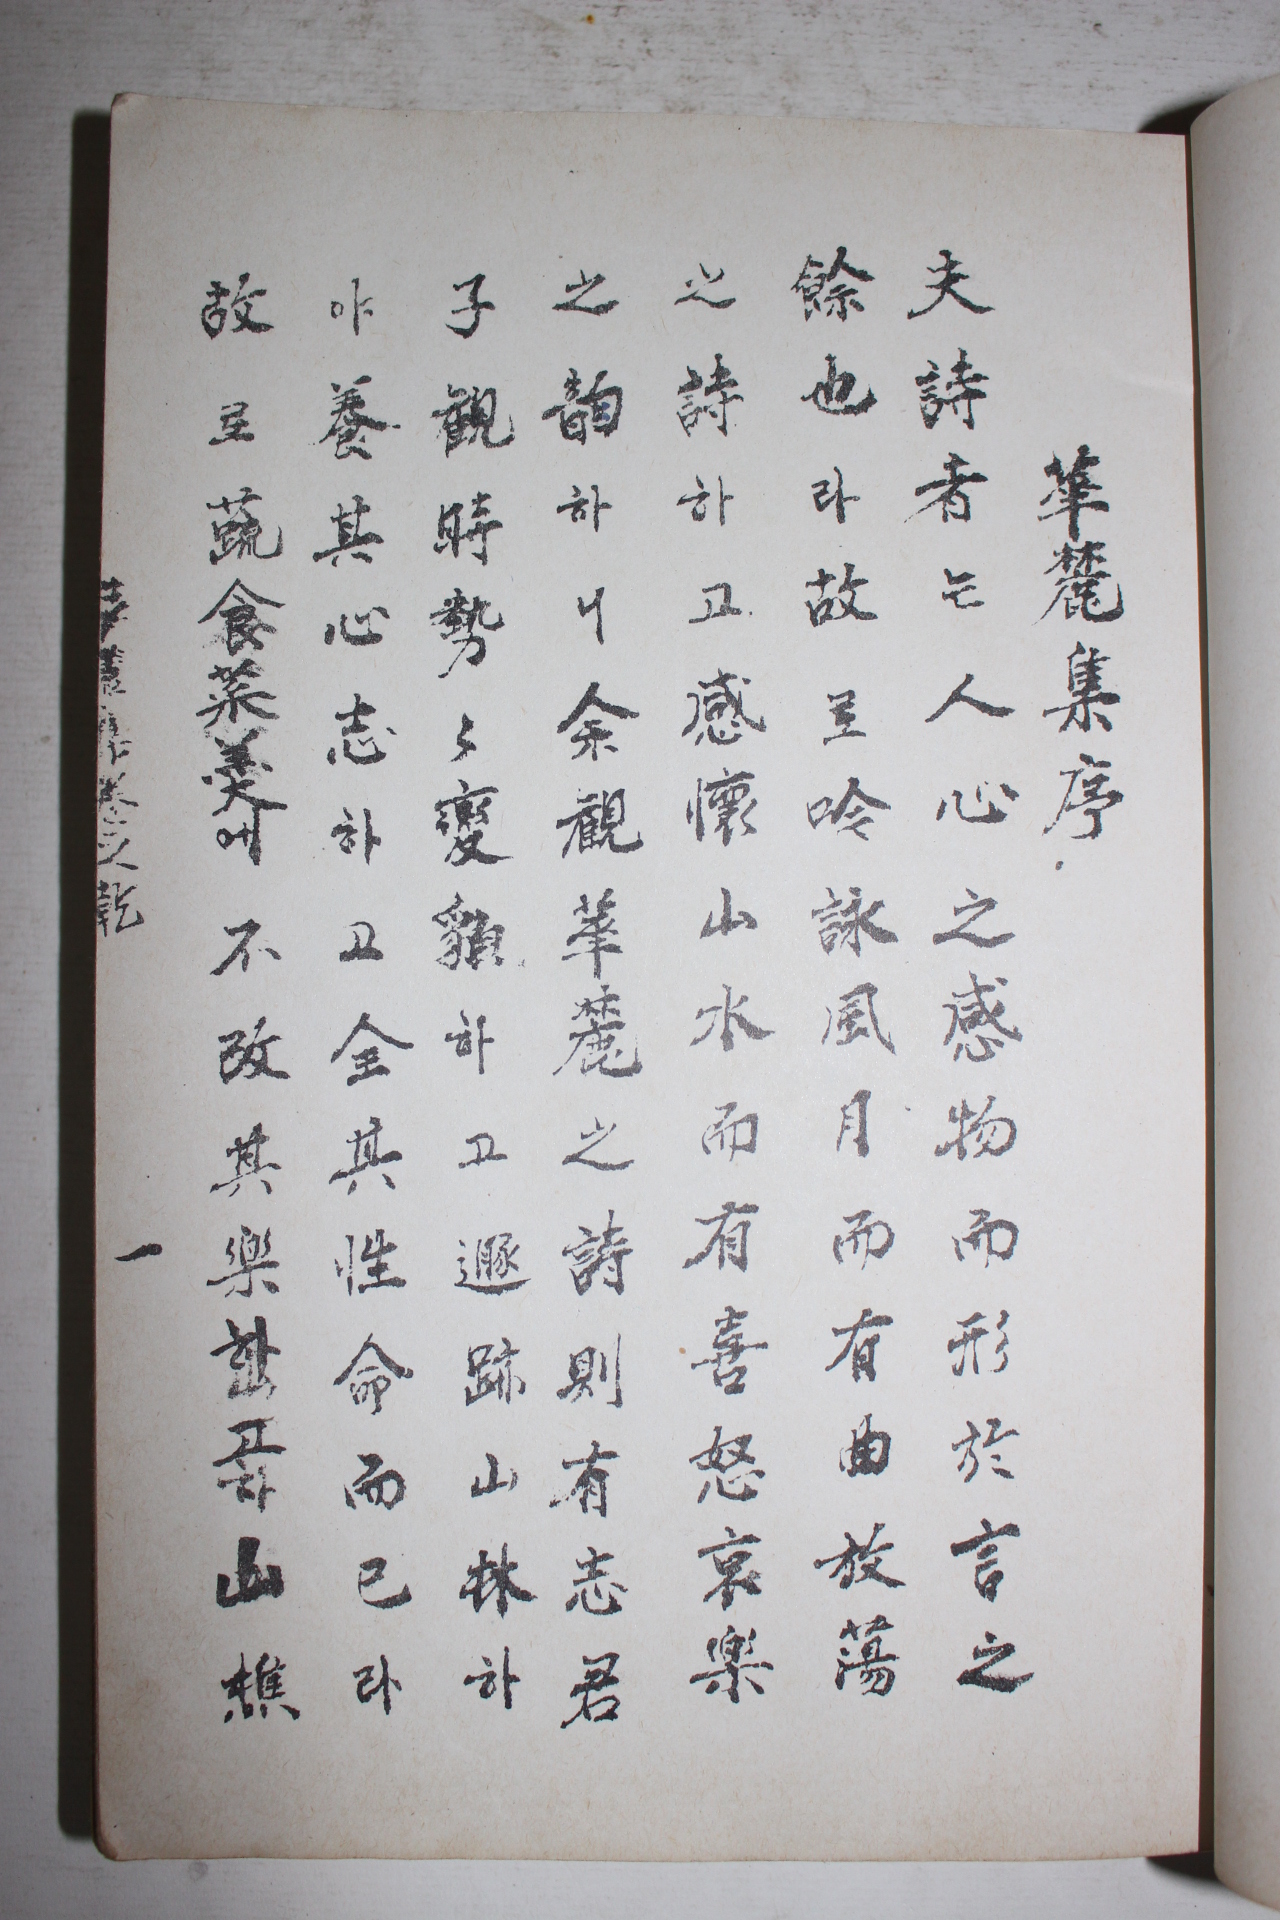 華麓集序
夫詩者는人心之感物而形於言之
餘也라故로吟詠風月而有曲放蕩
之詩하고感懷山水而有喜怒哀樂
之韻하니余觀華麓之詩則有志君
子觀時勢々變類하고遯跡山林하
야養其心志하고全其性命而已라
故로蔬食菜羹에不改其樂하고山樵
卷之乾
一